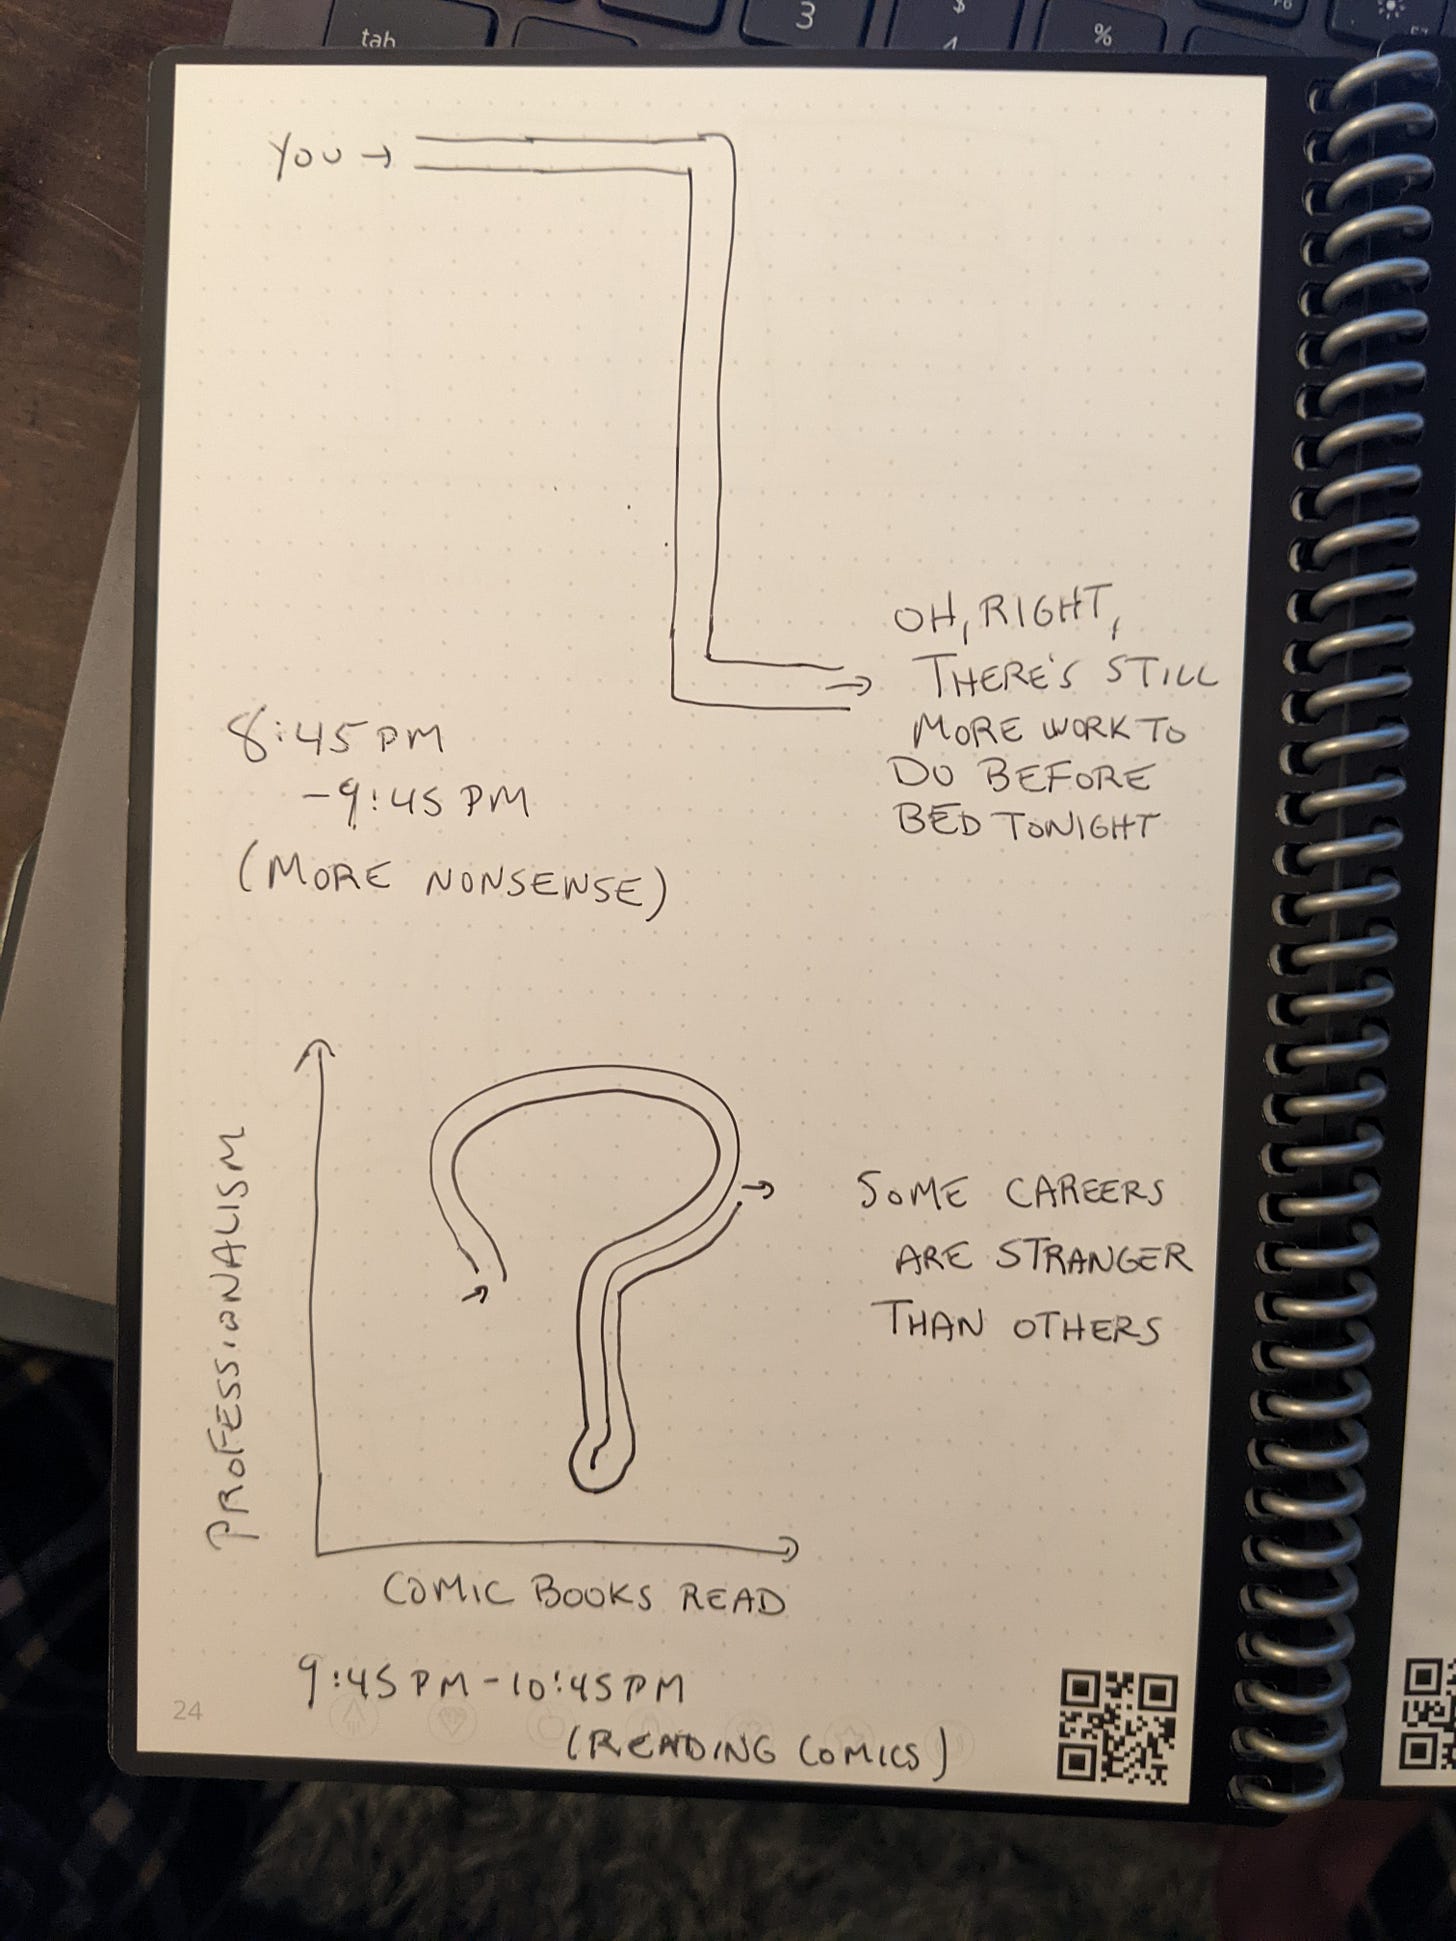 tab
3
$
4
%
F6
F7
YOU →
OH, RIGHT,
THERE'S STILL
MORE WORK TO
DO BEFORE
BED TONIGHT
8:45 PM
- 9:45 PM
(MORE NONSENSE)
PROFESSIONALISM
SOME CAREERS
ARE STRANGER
THAN OTHERS
COMIC BOOKS READ
9:45 PM - 10:45 PM
(READING COMICS)
24